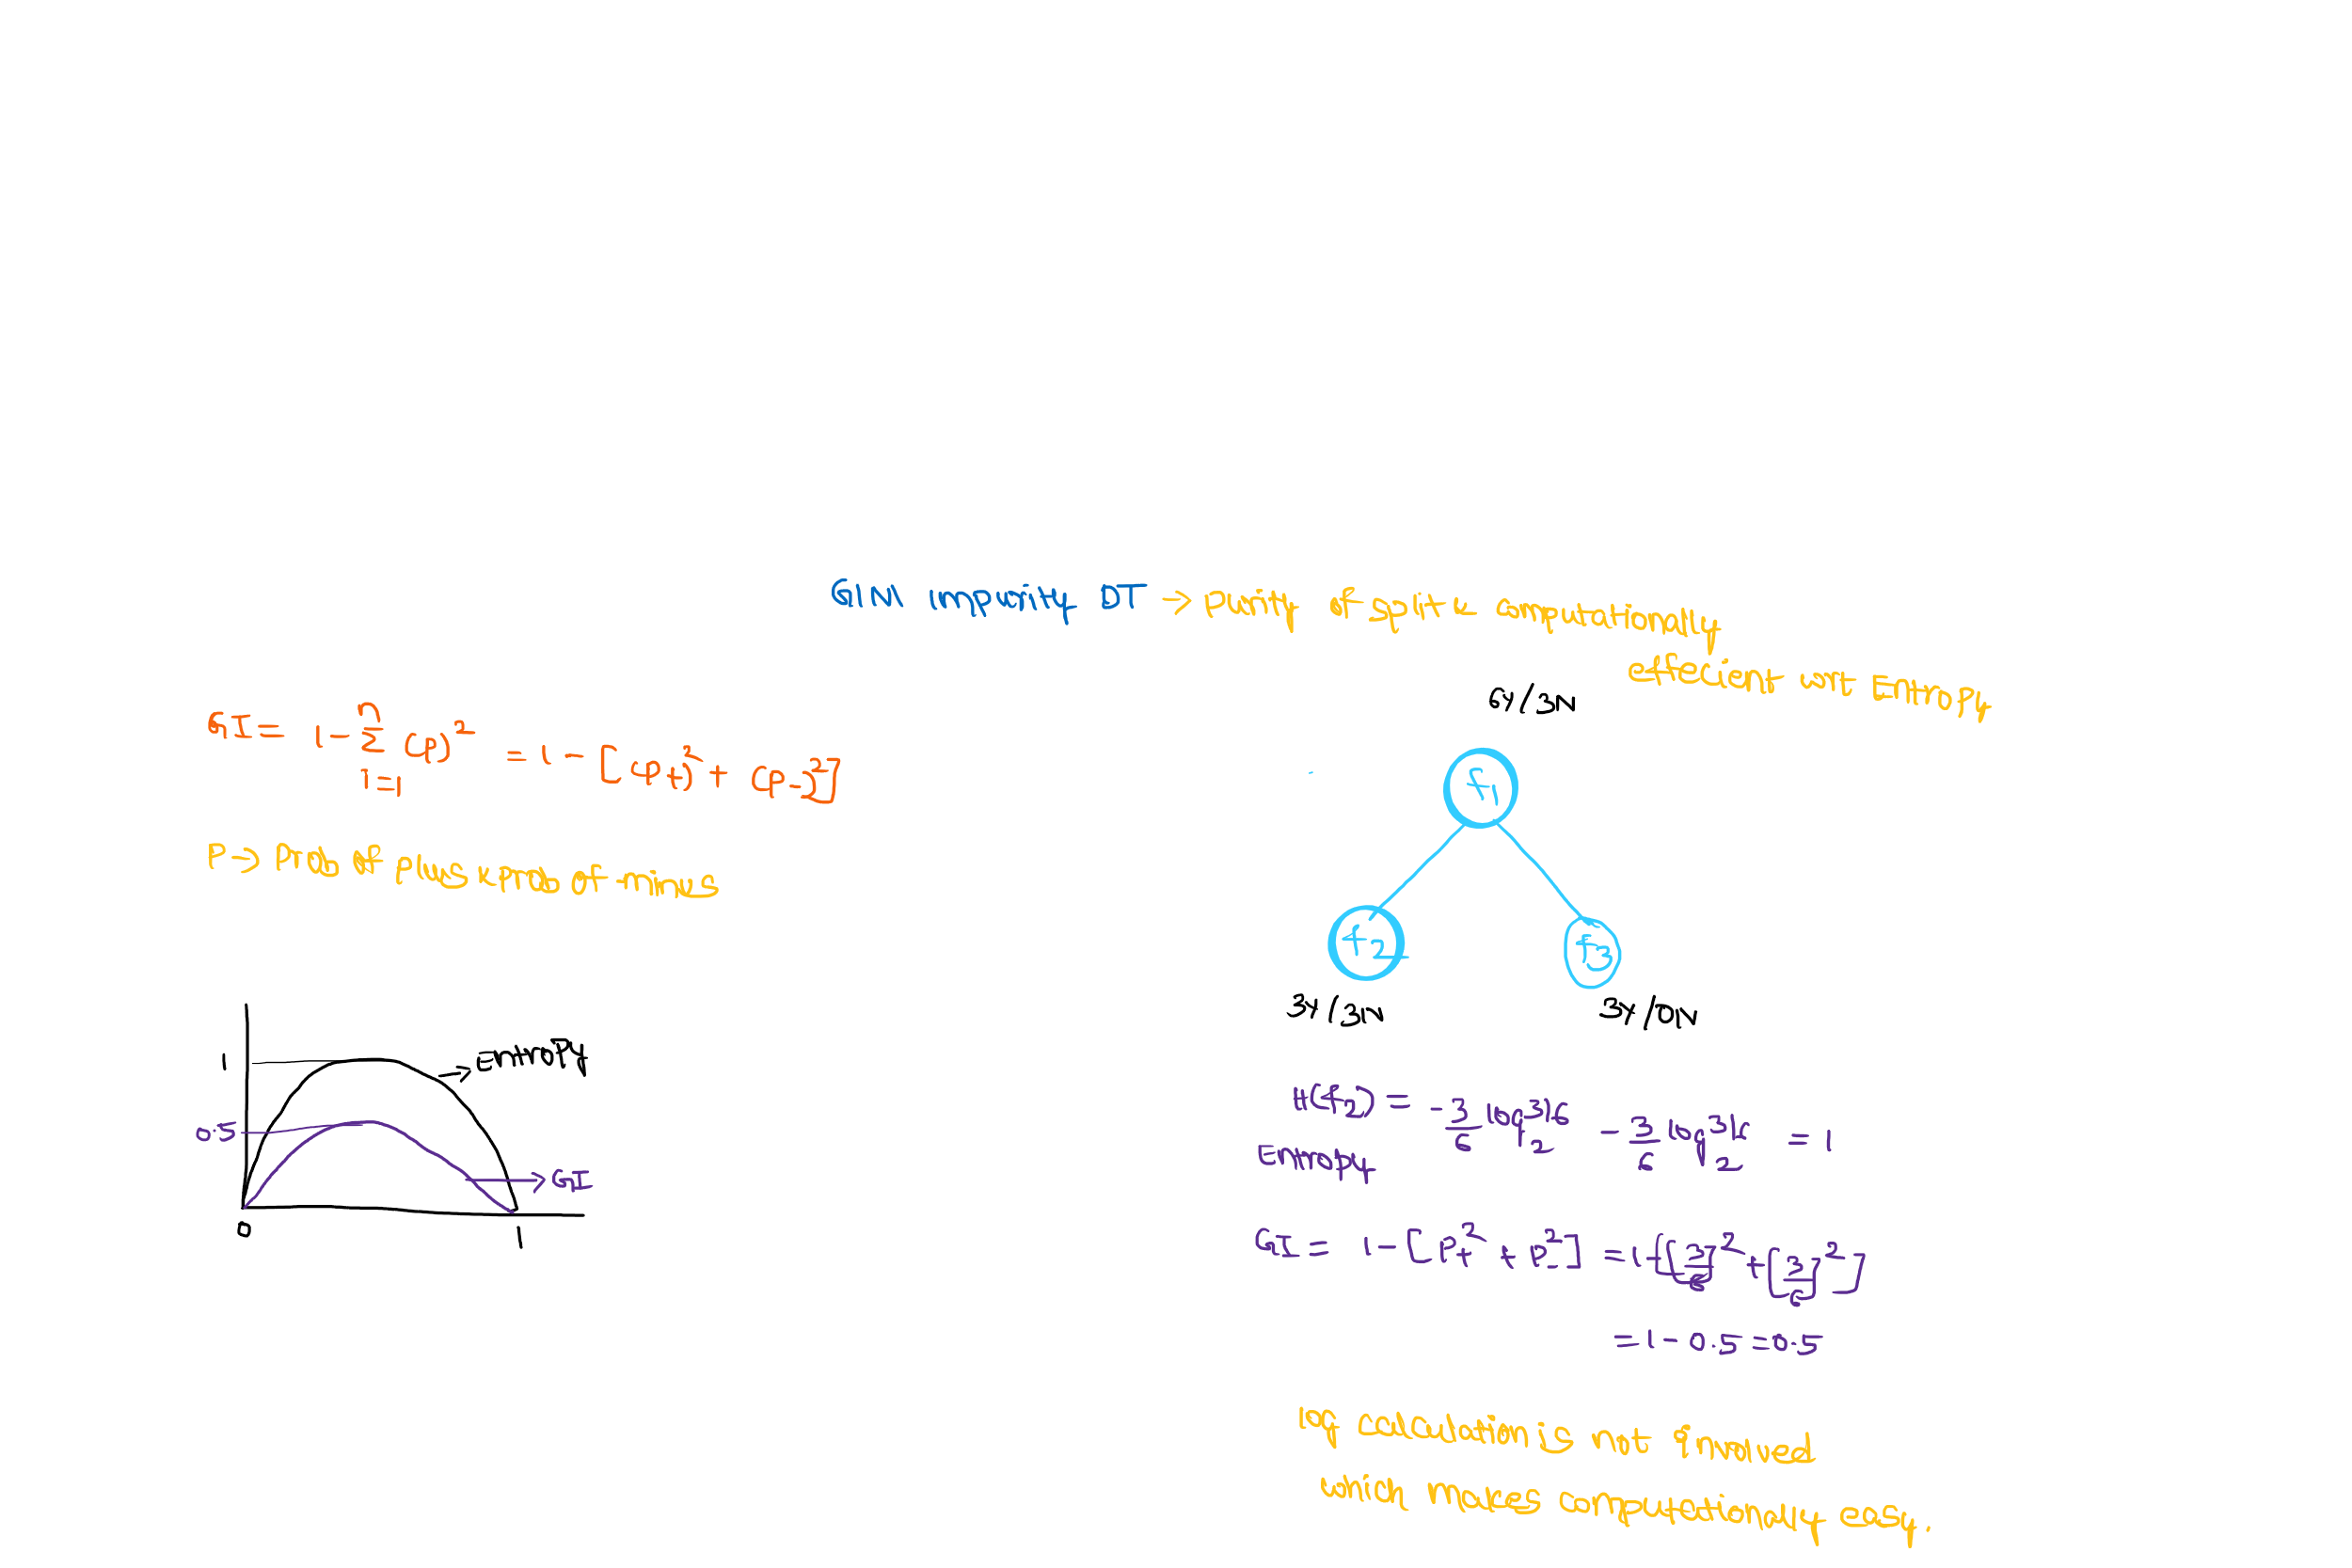 GINI Impurity DT → Purity of split & computationally
effecient wrt Entropy
GI = 1 - n Σ i=1 (p)² = 1 - [(p+)² + (p-)²]
P → Prob of plus & prob of minus
6Y/3N
f1
f2
f3
3Y/3N
3Y/0N
1
→ Entropy
0.5
→ GI
0
1
H(f2) = -3/6 log₂ 3/6 - 3/6 log₂ 3/6 = 1
Entropy
GI = 1 - [P+² + P-²] = 1-[[3/6]² + [3/6]²]
= 1 - 0.5 = 0.5
log calculation is not involved
which makes computationally easy.